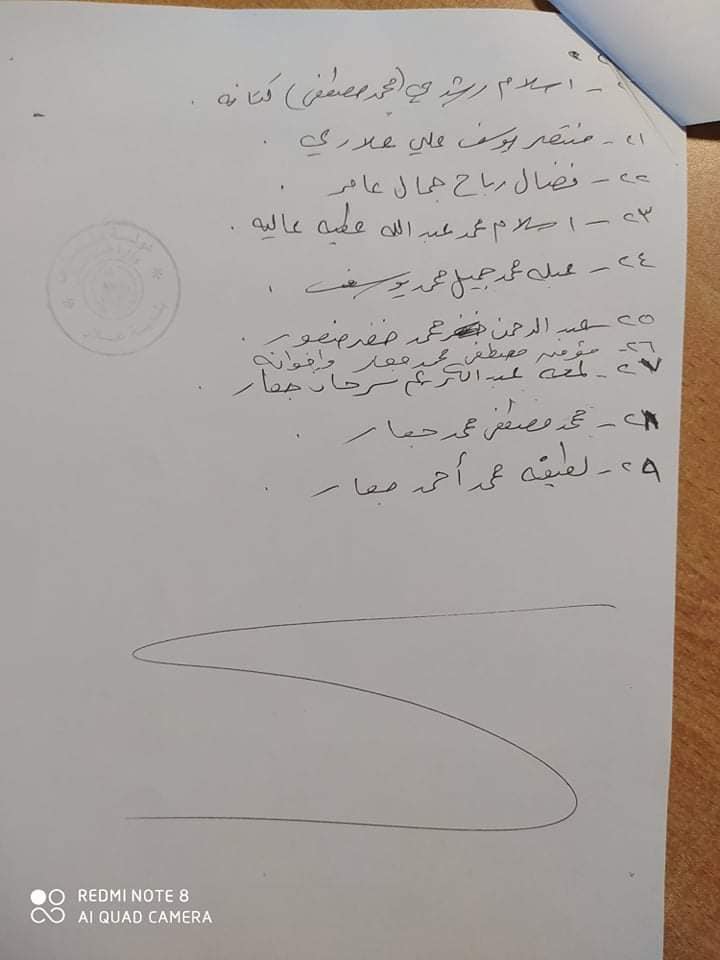 اسلام رشدي (محمد مصطفى) كتانه .
٢١ - منتصر يوسف علي علاري .
٢٢ - فضال رباح جمال عامر .
٢٣ - اسلام محمد عبد الله عطيه عاليه .
٢٤ - عبله محمد جميل محمد يوسف .
٢٥ - عبد الرحمن محمد خضر منصور .
٢٦ - مصطفى محمد جعار واخوانه
٢٧ - لمعه عبد الكريم سرحان جعار .
٢٨ - محمد مصطفى محمد جعار .
٢٩ - لطيفه محمد أحمد جعار .
REDMI NOTE 8
AI QUAD CAMERA